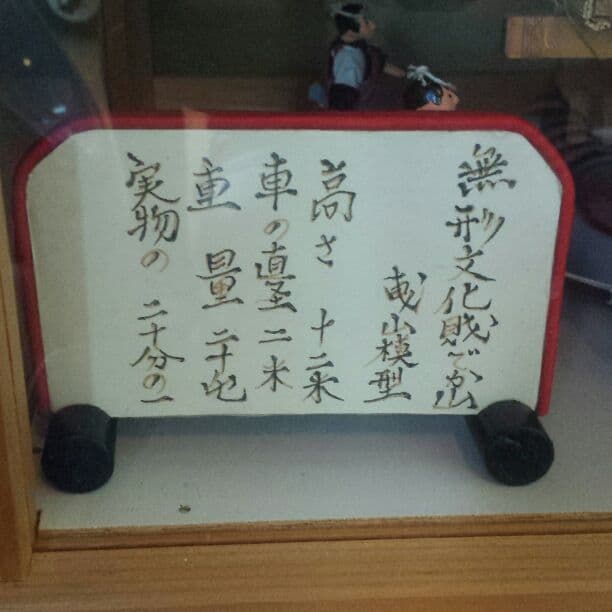 無形文化財でか山
曳山模型
高さ 十二米
車の直径 二米
重量 二十屯
実物の 二十分の一